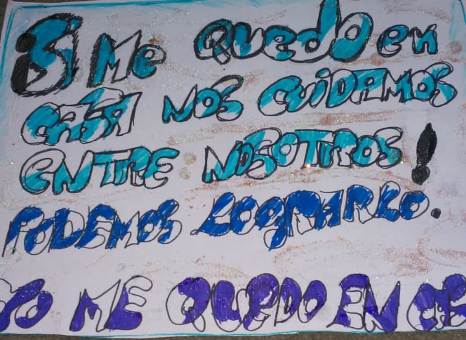 Si Me QUEDO en
CASA NOS CUIDAMOS
ENTRE NOSOTROS!
PODEMOS LOGRARLO.
YO ME QUEDO EN CA